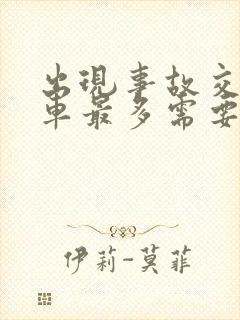 出現事故交
車最多需要
伊莉-莫菲